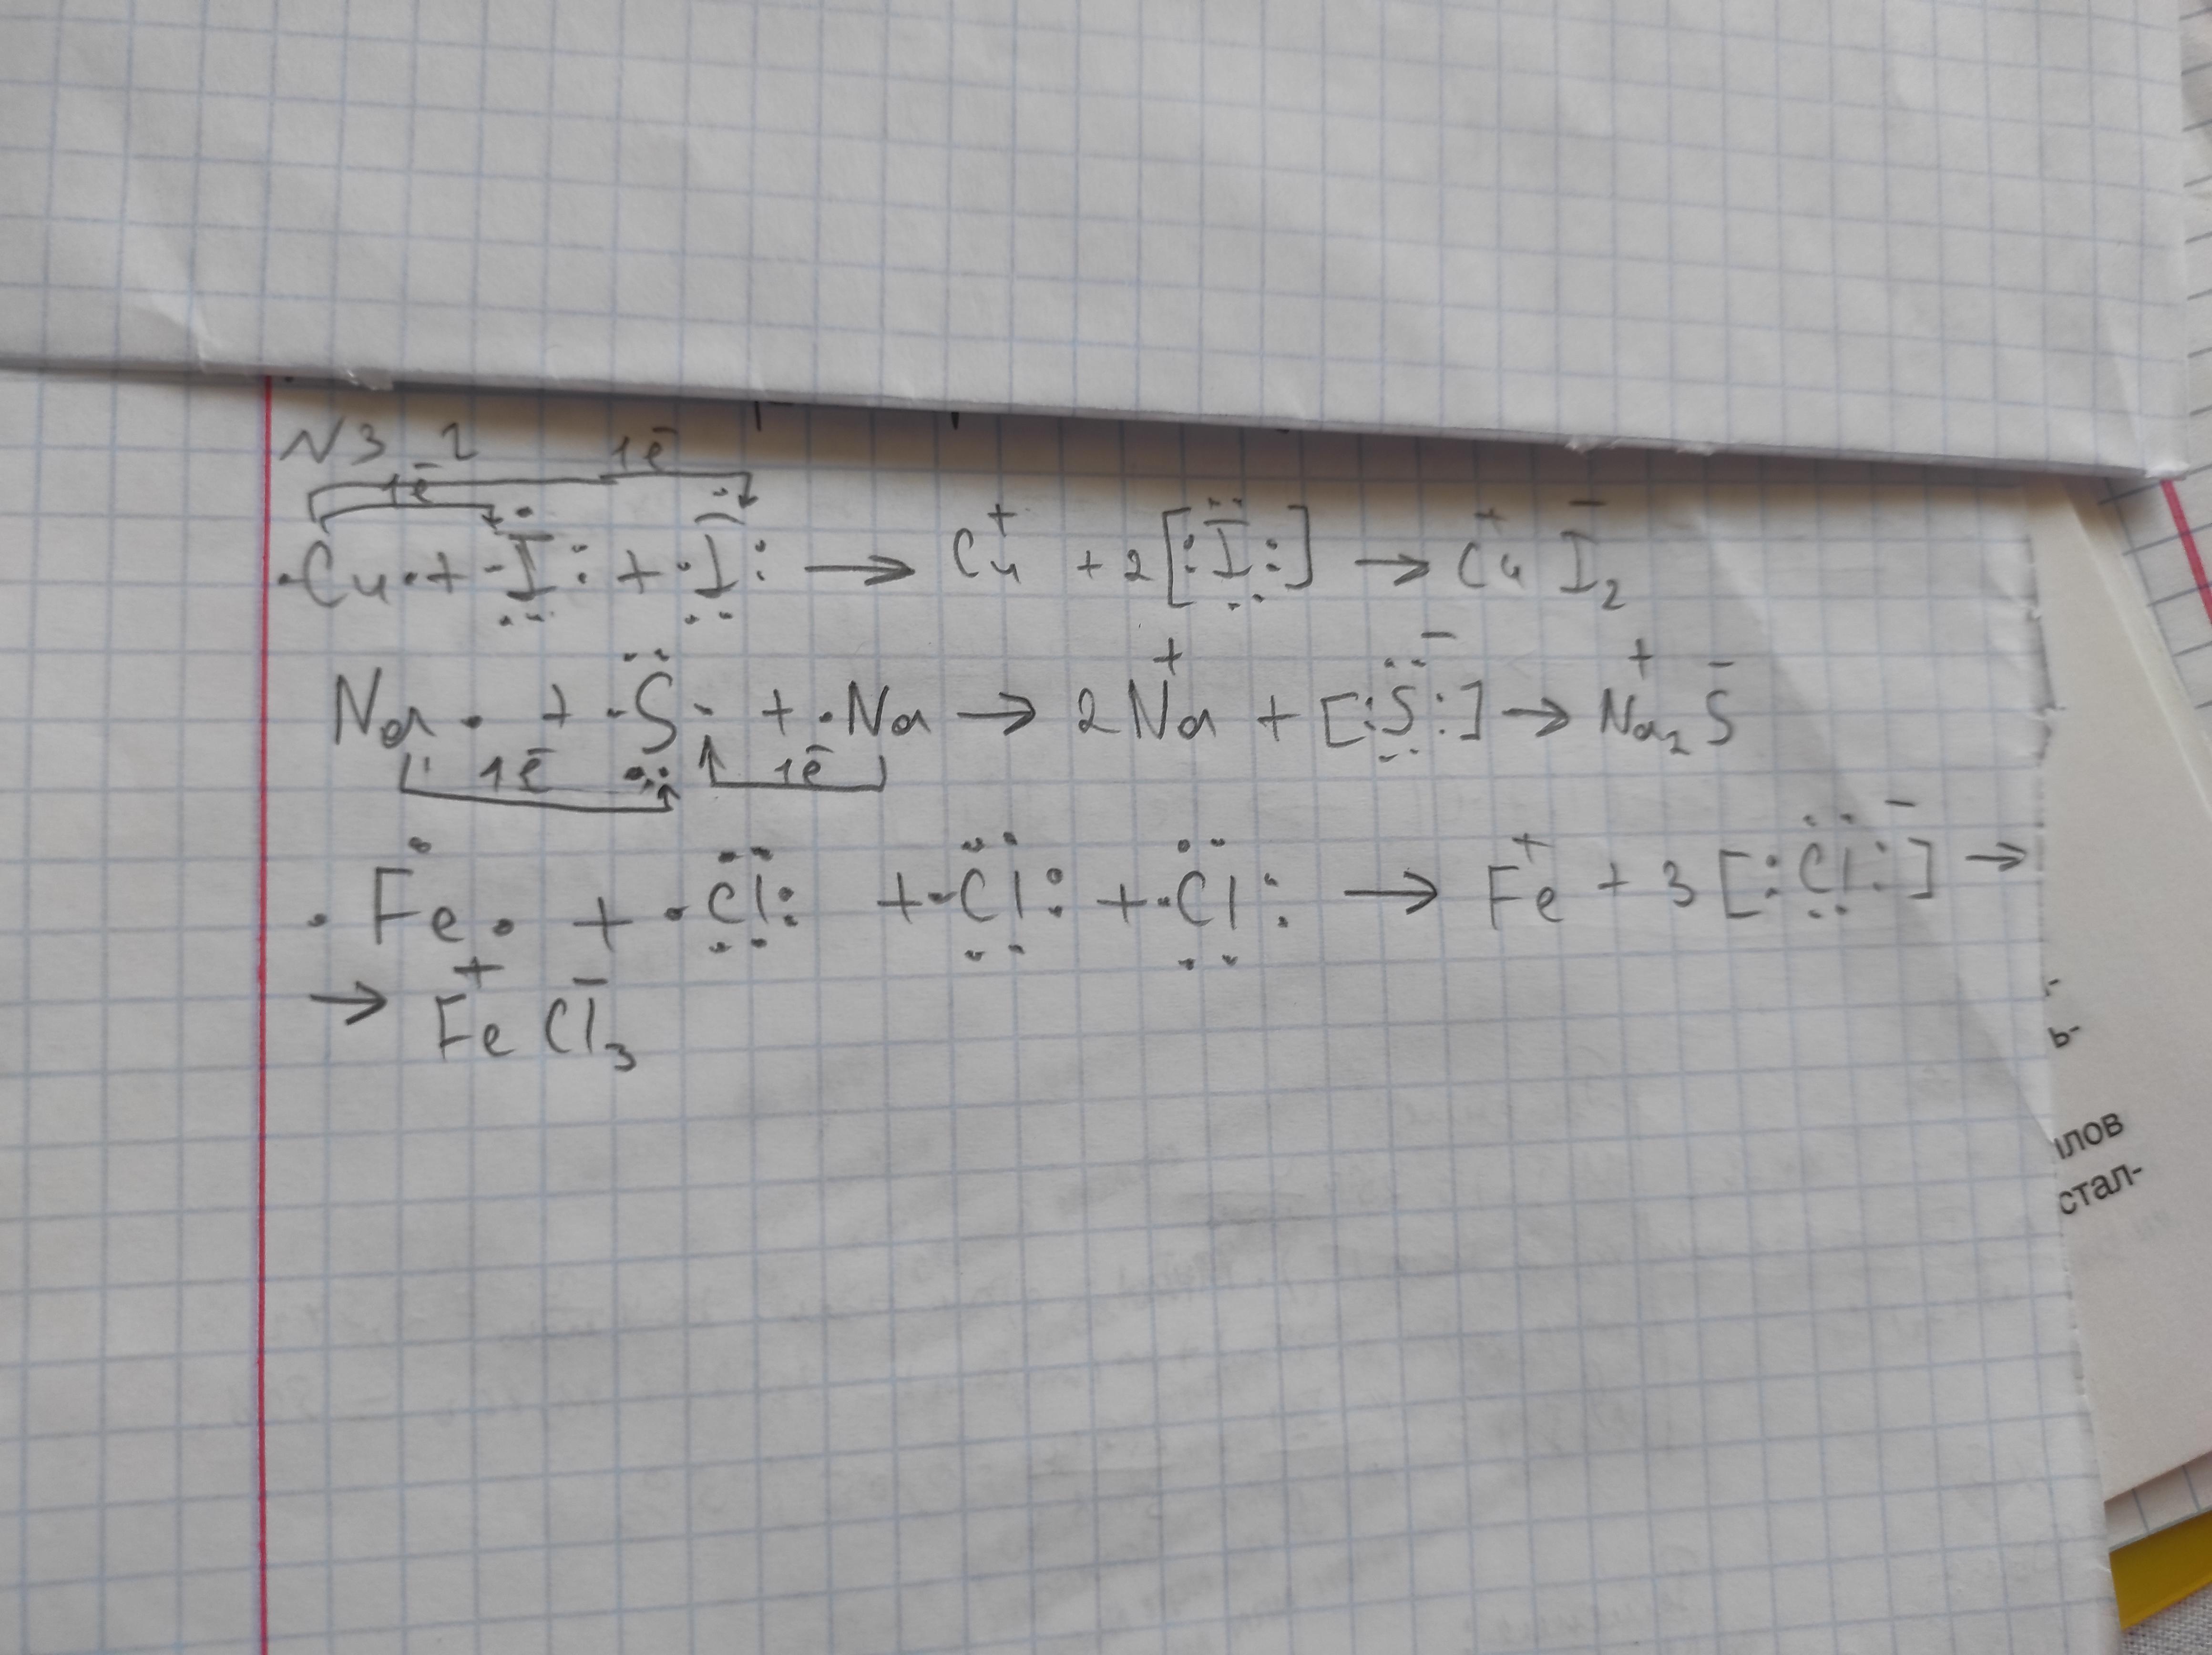 N3 2
1ē 1ē
·Cu· + ·I: + ·I: → Cu⁺ + 2[:I:]⁻ → Cu⁺I⁻₂
Na· + ·S· + ·Na → 2Na⁺ + [:S:]⁻ → Na⁺₂S⁻
1ē 1ē
·Fe· + ·Cl: + ·Cl: + ·Cl: → Fe⁺ + 3[:Cl:]⁻ →
→ Fe⁺Cl⁻₃
ь-
лов
стал-